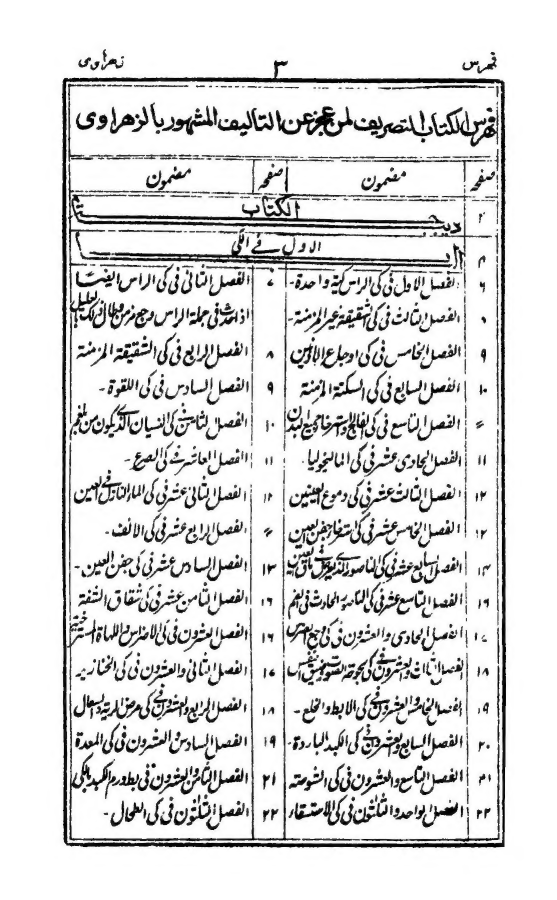 فهرس ٣ زهراوی
فهرس الكتاب التصريف لمن عجز عن التاليف المشهور بالزهراوی
صفحه مضمون صفحه مضمون
٢ ديباجة الكتاب
م الباب الاول فے الكی
٦ الفصل الاول فی كی الراس كية واحدة۔ ٧ الفصل الثانی فی كی الراس ايضا
اذا حدث فی جملة الراس وجع مزمن
الفصل الثالث فی كی الشقيقة غير المزمنة۔ ٨ الفصل الرابع فی كی الشقيقة المزمنة
٩ الفصل الخامس فی كی اوجاع الاذنين ٩ الفصل السادس فی كی اللقوة۔
١٠ الفصل السابع فی كی السكتة المزمنة
〃 الفصل التاسع فی كی الفالج واسترخاء جميع البدن ١٠ الفصل الثامن فی كی النسيان الذی يكون من بلغم
١١ الفصل الحادی عشر فی كی المالنخوليا۔ ١١ الفصل العاشر فے كی الصرع۔
١٢ الفصل الثالث عشر فی كی دموع العينين ١٢ الفصل الثانی عشر فی كی الماء النازل فی العين
١٢ الفصل الخامس عشر فی كی استرخاء جفن العين 〃 الفصل الرابع عشر فی كی الانف۔
١٣ الفصل السابع عشر فی كی الناصور الذی فی ماق العين ١٣ الفصل السادس عشر فی كی جفن العين۔
١٦ الفصل التاسع عشر فی كی الناصور الحادث فی الفم ١٦ الفصل الثامن عشر فی كی شقاق الشفة
الفصل الحادی والعشرون فی كی وجع الضرس ١٦ الفصل العشرون فی كی الاضراس واللهاة المسترخية
١٨ الفصل الثالث والعشرون فی كی بحوحة الصوت وضيق النفس ١٧ الفصل الثانی والعشرون فی كی الخنازير
١٩ الفصل الخامس والعشرون فی كی الابط والخلع۔ ١٨ الفصل الرابع والعشرون فی كی مرض الرية والسعال
٢٠ الفصل السابع والعشرون فی كی الكبد الباردة۔ ١٩ الفصل السادس والعشرون فی كی المعدة
٢١ الفصل التاسع والعشرون فی كی الشوصة ٢١ الفصل الثامن والعشرون فی بط ورم الكبد بالكی
٢٢ الفصل الواحد والثلثون فی كی الاستسقاء ٢٢ الفصل الثلثون فی كی الطحال۔